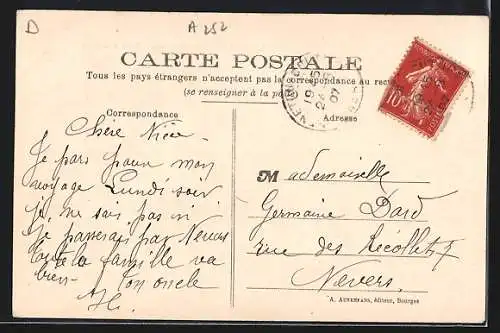 D
A 252
CARTE POSTALE
Tous les pays étrangers n'acceptent pas la correspondance au recto
(se renseigner à la poste)
Correspondance
Adresse
Chère Nièce
Je pars pour mon
voyage Lundi soir
je ne sais pas si
je passerai par Nevers
toute la famille va
bien Ton oncle
Mademoiselle
Germaine Dard
rue des Récollets 7
Nevers.
A. AUXENFANS, éditeur, Bourges
10